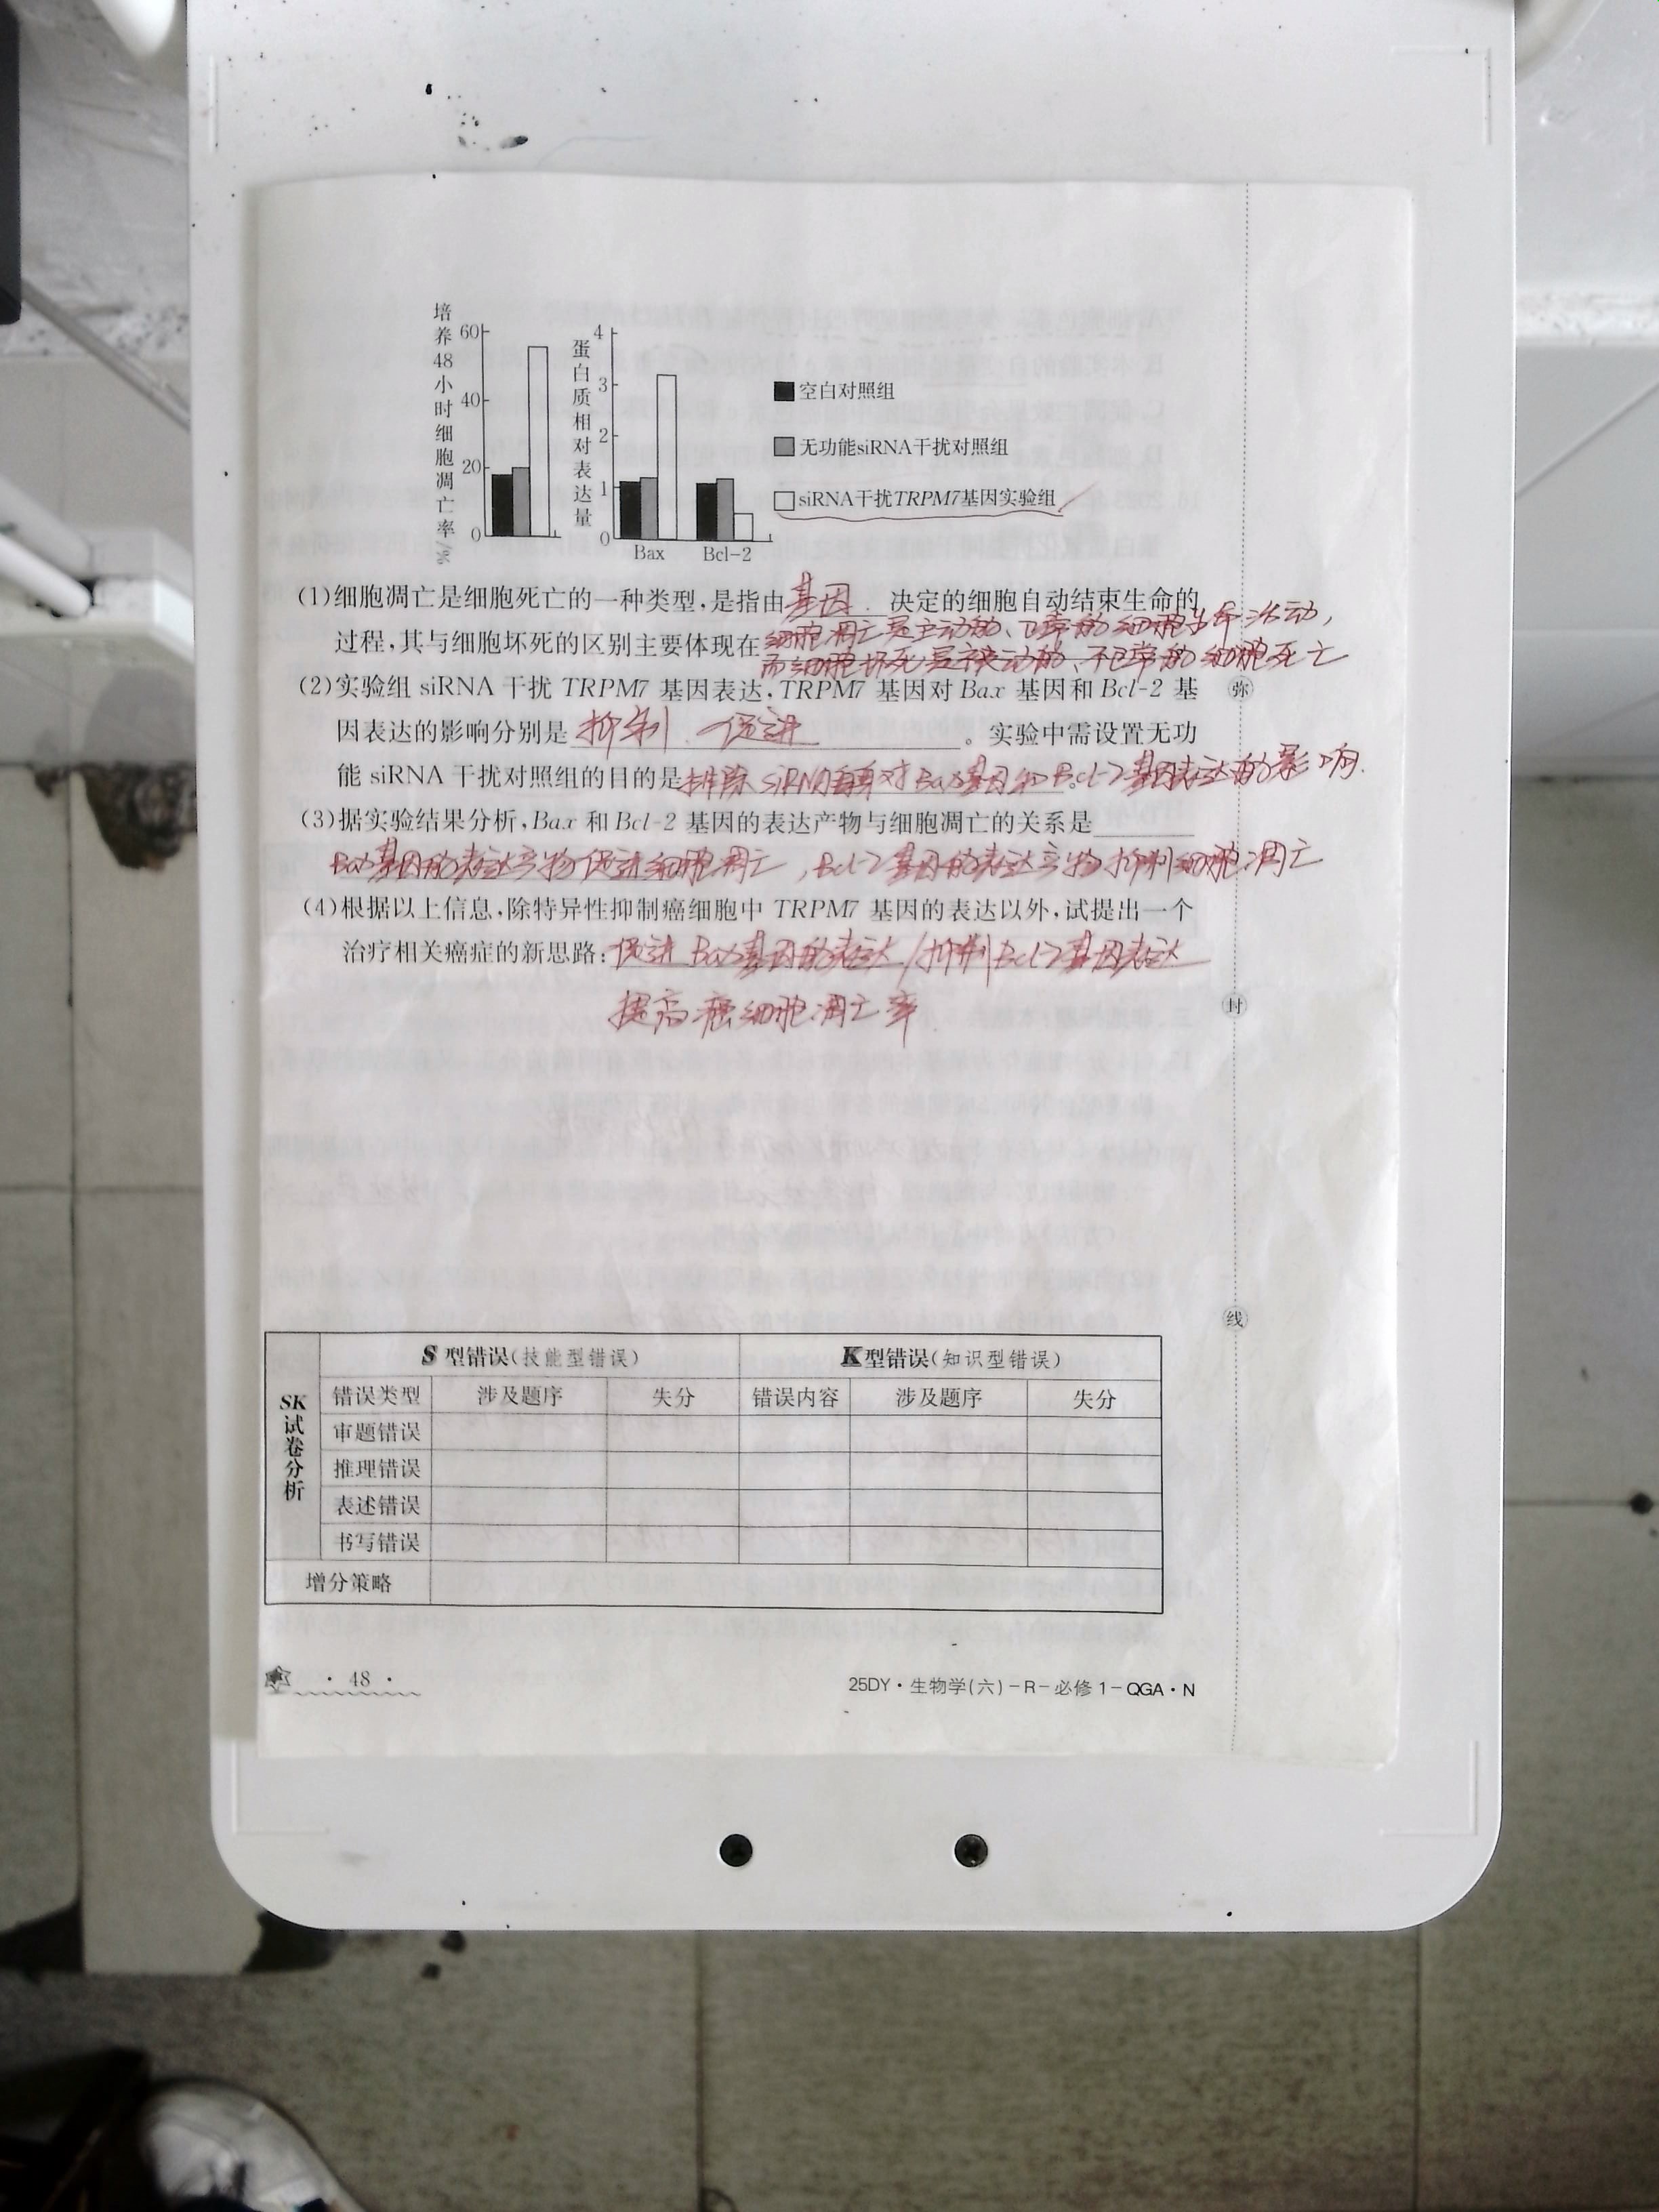 培养48小时细胞凋亡率/%
60
40
20
0
蛋白质相对表达量
4
3
2
1
0
Bax
Bcl-2
空白对照组
无功能siRNA干扰对照组
siRNA干扰TRPM7基因实验组
(1)细胞凋亡是细胞死亡的一种类型,是指由基因 决定的细胞自动结束生命的
过程,其与细胞坏死的区别主要体现在细胞凋亡是主动的、正常的细胞生命活动,
而细胞坏死是被动的、不正常的细胞死亡
(2)实验组 siRNA 干扰 TRPM7 基因表达,TRPM7 基因对 Bax 基因和 Bcl-2 基
因表达的影响分别是 抑制、促进 。实验中需设置无功
能 siRNA 干扰对照组的目的是排除siRNA自身对Bax基因和Bcl-2基因表达的影响.
(3)据实验结果分析,Bax 和 Bcl-2 基因的表达产物与细胞凋亡的关系是
Bax基因的表达产物促进细胞凋亡,Bcl-2基因的表达产物抑制细胞凋亡
(4)根据以上信息,除特异性抑制癌细胞中 TRPM7 基因的表达以外,试提出一个
治疗相关癌症的新思路:促进Bax基因的表达/抑制Bcl-2基因表达
提高癌细胞凋亡率
弥
封
线
SK试卷分析
S 型错误(技能型错误) K型错误(知识型错误)
错误类型 涉及题序 失分 错误内容 涉及题序 失分
审题错误
推理错误
表述错误
书写错误
增分策略
· 48 ·
25DY·生物学(六)-R-必修1-QGA·N